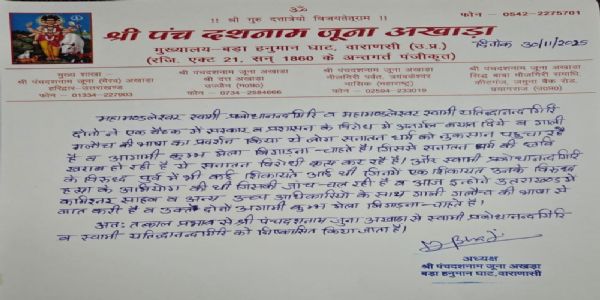 ॐ
!! श्री गुरु दत्तात्रेयो विजयतेतराम !!
फोन – 0542-2275701
श्री पंच दशनाम जूना अखाड़ा
मुख्यालय-बड़ा हनुमान घाट, वाराणसी (उ.प्र.)
(रजि. एक्ट 21, सन् 1860 के अन्तर्गत पंजीकृत)
दिनांक 30/11/2025
मुख्य शाखा :
श्री पंचदशनाम जूना (भैरव) अखाड़ा
हरिद्वार-उत्तराखण्ड
फोन - 01334-227903
श्री पंचदशनाम जूना अखाड़ा
श्री दत्त अखाड़ा
उज्जैन (म0प्र0)
फोन - 0734-2584666
श्री पंचदशनाम जूना अखाड़ा
नीलगिरी पर्वत, त्र्यंबकेश्वर
नासिक (महाराष्ट्र)
फोन - 02594-233019
श्री पंचदशनाम जूना अखाड़ा
सिद्ध बाबा मौजगिरी समाधि,
कीटगंज, जमुना बैंक रोड,
प्रयागराज (उ0प्र0)
महामण्डलेश्वर स्वामी प्रबोधानन्द गिरि व महामण्डलेश्वर स्वामी यतिन्द्रानन्द गिरि
दोनो ने एक बैठक में सरकार व प्रशासन के विरोध में अनर्गल कथन दिये व गाली
गलौच की भाषा का प्रदर्शन किया ये लोग सनातन धर्म को नुकसान पहुचा रहे
है व आगामी कुम्भ मेला बिगाडना चाहते है। जिससे सनातन धर्म की छवि
खराब हो रही है ये सनातन विरोधी कृत्य कर रहे है। और स्वामी प्रबोधानन्द गिरि
के विरुद्ध पूर्व में भी कई शिकायते आई थी जिनमे एक शिकायत उनके विरुद्ध
हत्या के अभियोग की थी जिसकी जाँच चल रही है व आज इन्होने उत्तराखण्ड में
कमिश्नर साहब व अन्य उच्च अधिकारियो के साथ गाली गलौच की भाषा से
बात करी है व उक्त दोनो आगामी कुम्भ मेला बिगाडना चाहते है।
अतः तत्काल प्रभाव से श्री पंचदशनाम जूना अखाडा से स्वामी प्रबोधानन्द गिरि
व स्वामी यतिन्द्रानन्द गिरि को निष्कासित किया जाता है।
अध्यक्ष
श्री पंचदशनाम जूना अखाड़ा
बड़ा हनुमान घाट, वाराणसी